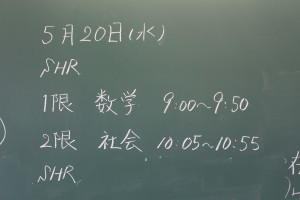 5月20日(水)
SHR
1限 数学 9:00～9:50
2限 社会 10:05～10:55
SHR